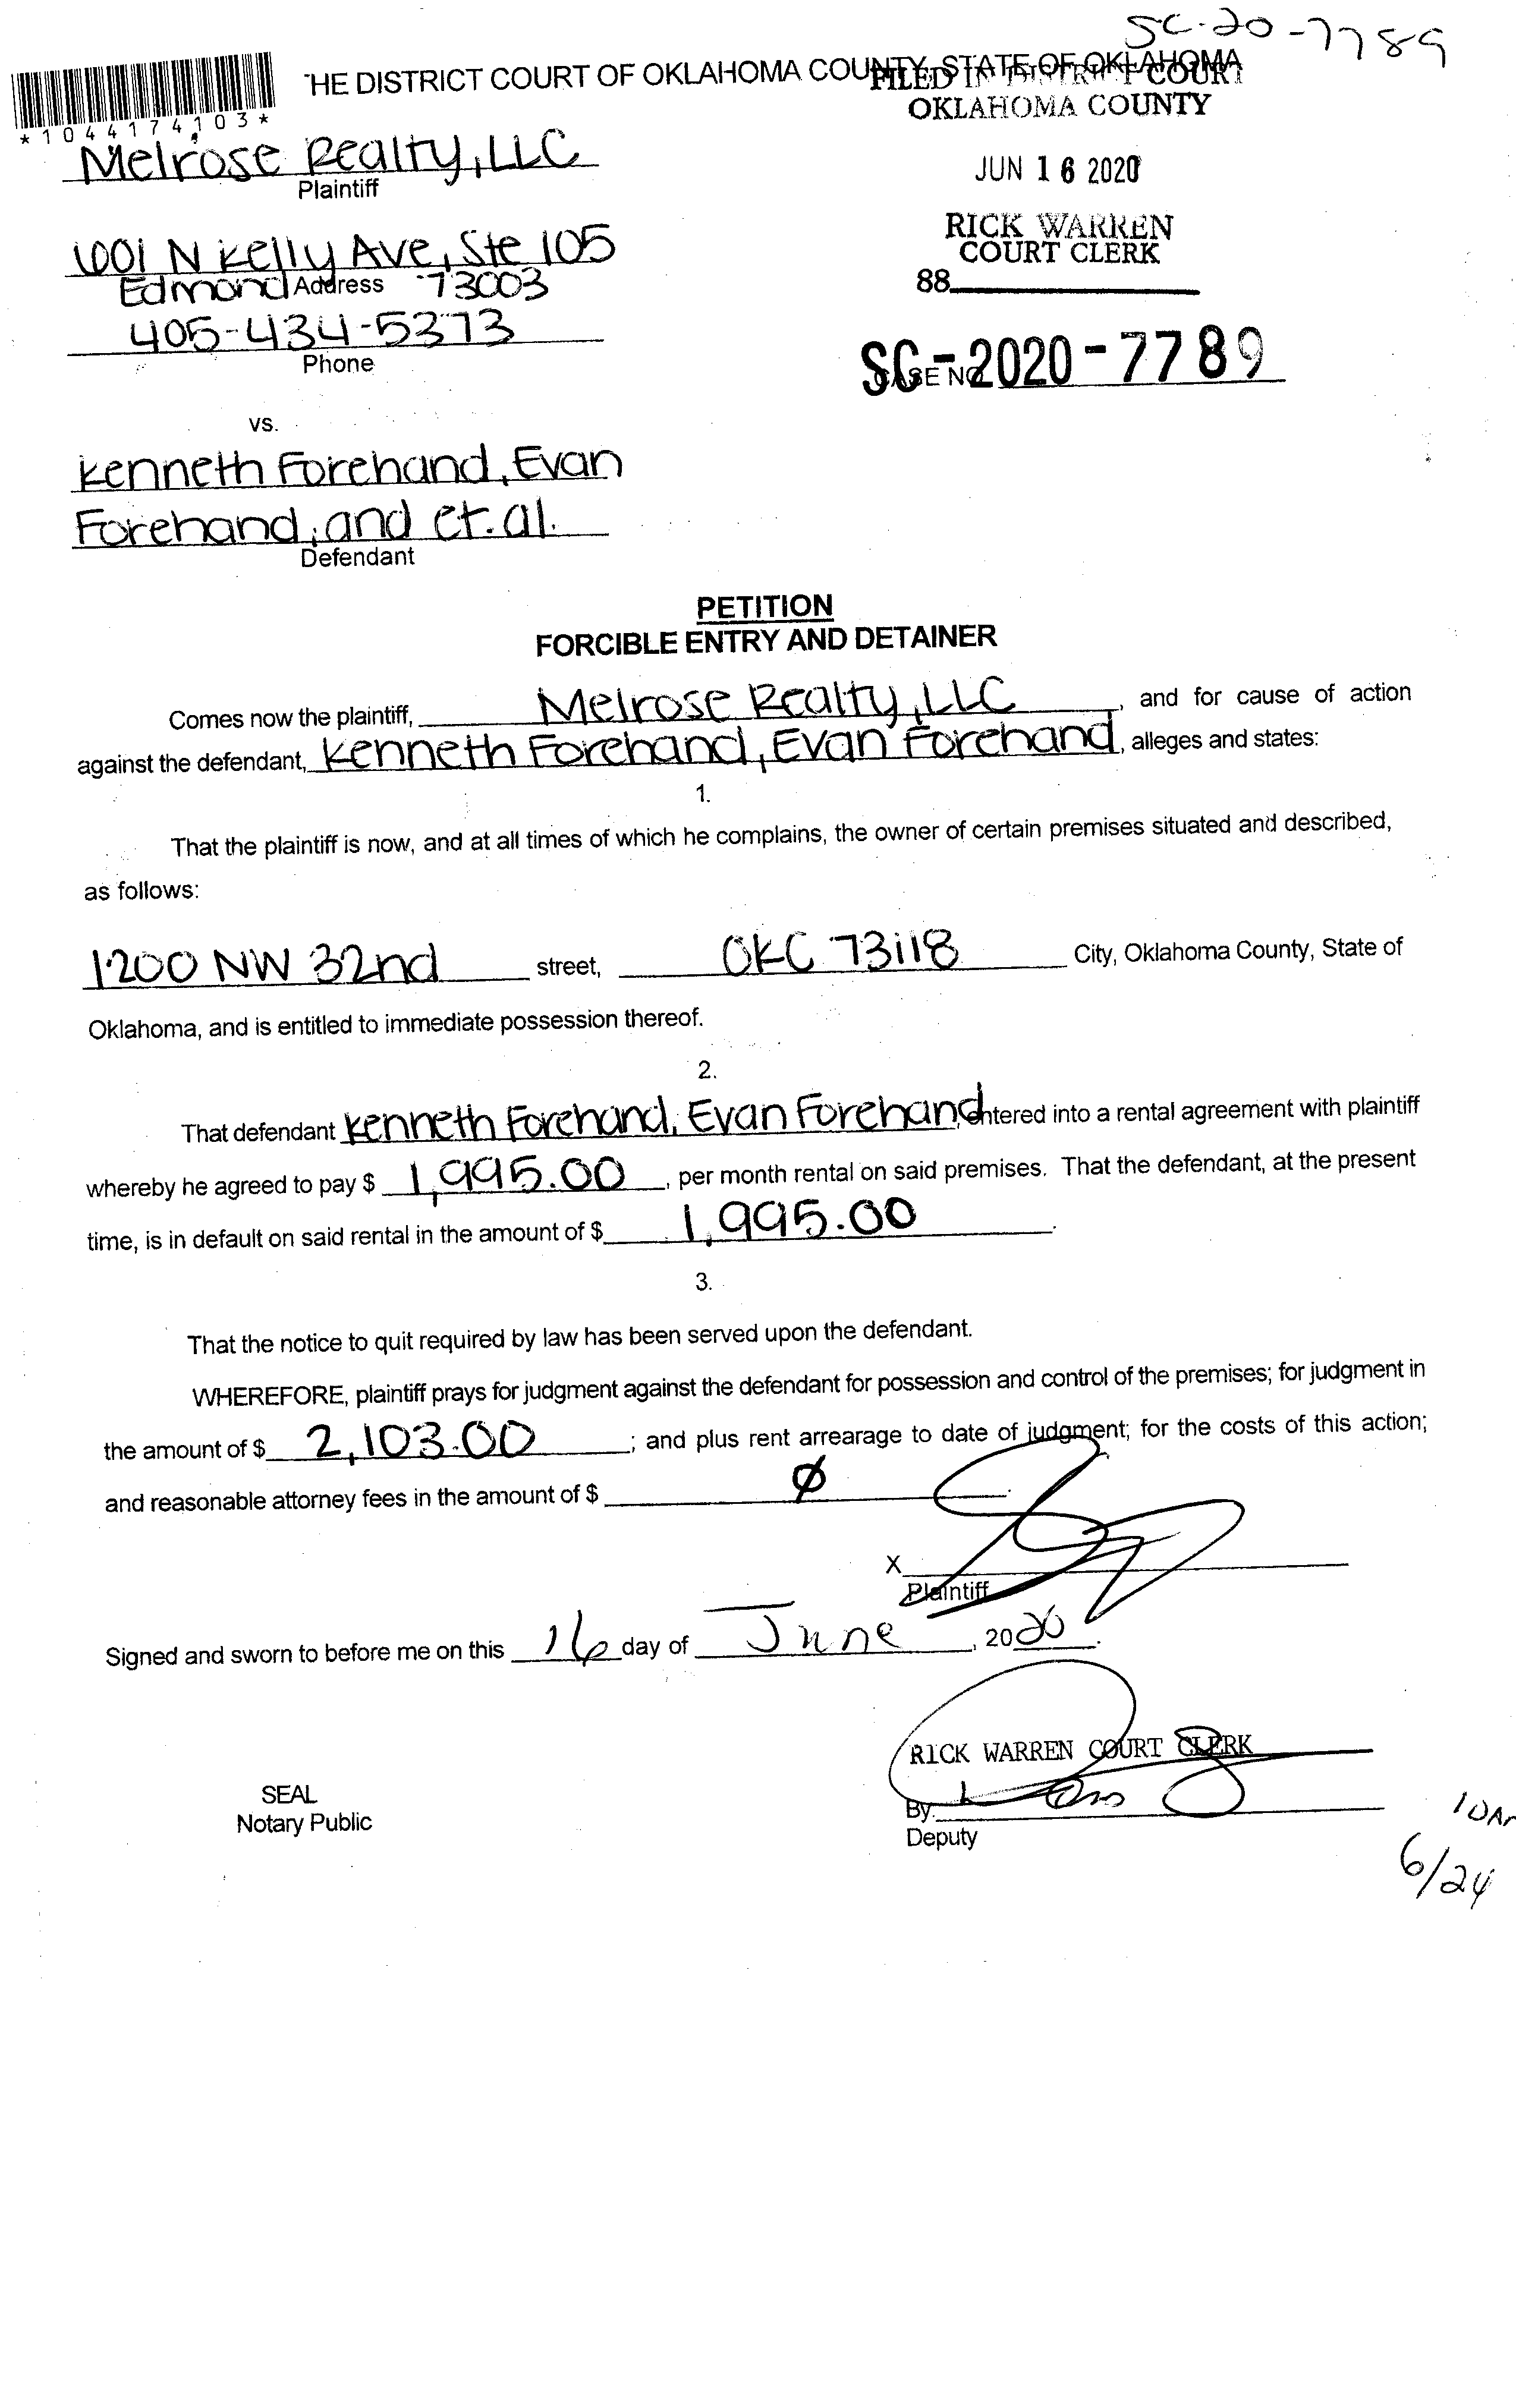 SC-20-7789
THE DISTRICT COURT OF OKLAHOMA COUNTY, STATE OF OKLAHOMA
FILED IN DISTRICT COURT
OKLAHOMA COUNTY
*1044174103*
Melrose Realty, LLC
Plaintiff
JUN 16 2020
RICK WARREN
COURT CLERK
88
601 N Kelly Ave, Ste 105
Edmond Address 73003
405-434-5373
Phone
SC-2020-7789
CASE NO.
vs.
Kenneth Forehand, Evan
Forehand, and et. al.
Defendant
PETITION
FORCIBLE ENTRY AND DETAINER
Comes now the plaintiff, Melrose Realty, LLC, and for cause of action
against the defendant, Kenneth Forehand, Evan Forehand, alleges and states:
1.
That the plaintiff is now, and at all times of which he complains, the owner of certain premises situated and described,
as follows:
1200 NW 32nd street, OKC 73118 City, Oklahoma County, State of
Oklahoma, and is entitled to immediate possession thereof.
2.
That defendant Kenneth Forehand, Evan Forehand, entered into a rental agreement with plaintiff
whereby he agreed to pay $ 1,995.00, per month rental on said premises. That the defendant, at the present
time, is in default on said rental in the amount of $ 1,995.00.
3.
That the notice to quit required by law has been served upon the defendant.
WHEREFORE, plaintiff prays for judgment against the defendant for possession and control of the premises; for judgment in
the amount of $ 2,103.00; and plus rent arrearage to date of judgment; for the costs of this action;
and reasonable attorney fees in the amount of $ Ø.
X
Plaintiff
Signed and sworn to before me on this 16 day of June, 2020.
RICK WARREN COURT CLERK
SEAL
Notary Public
By:
Deputy
10AM
6/24